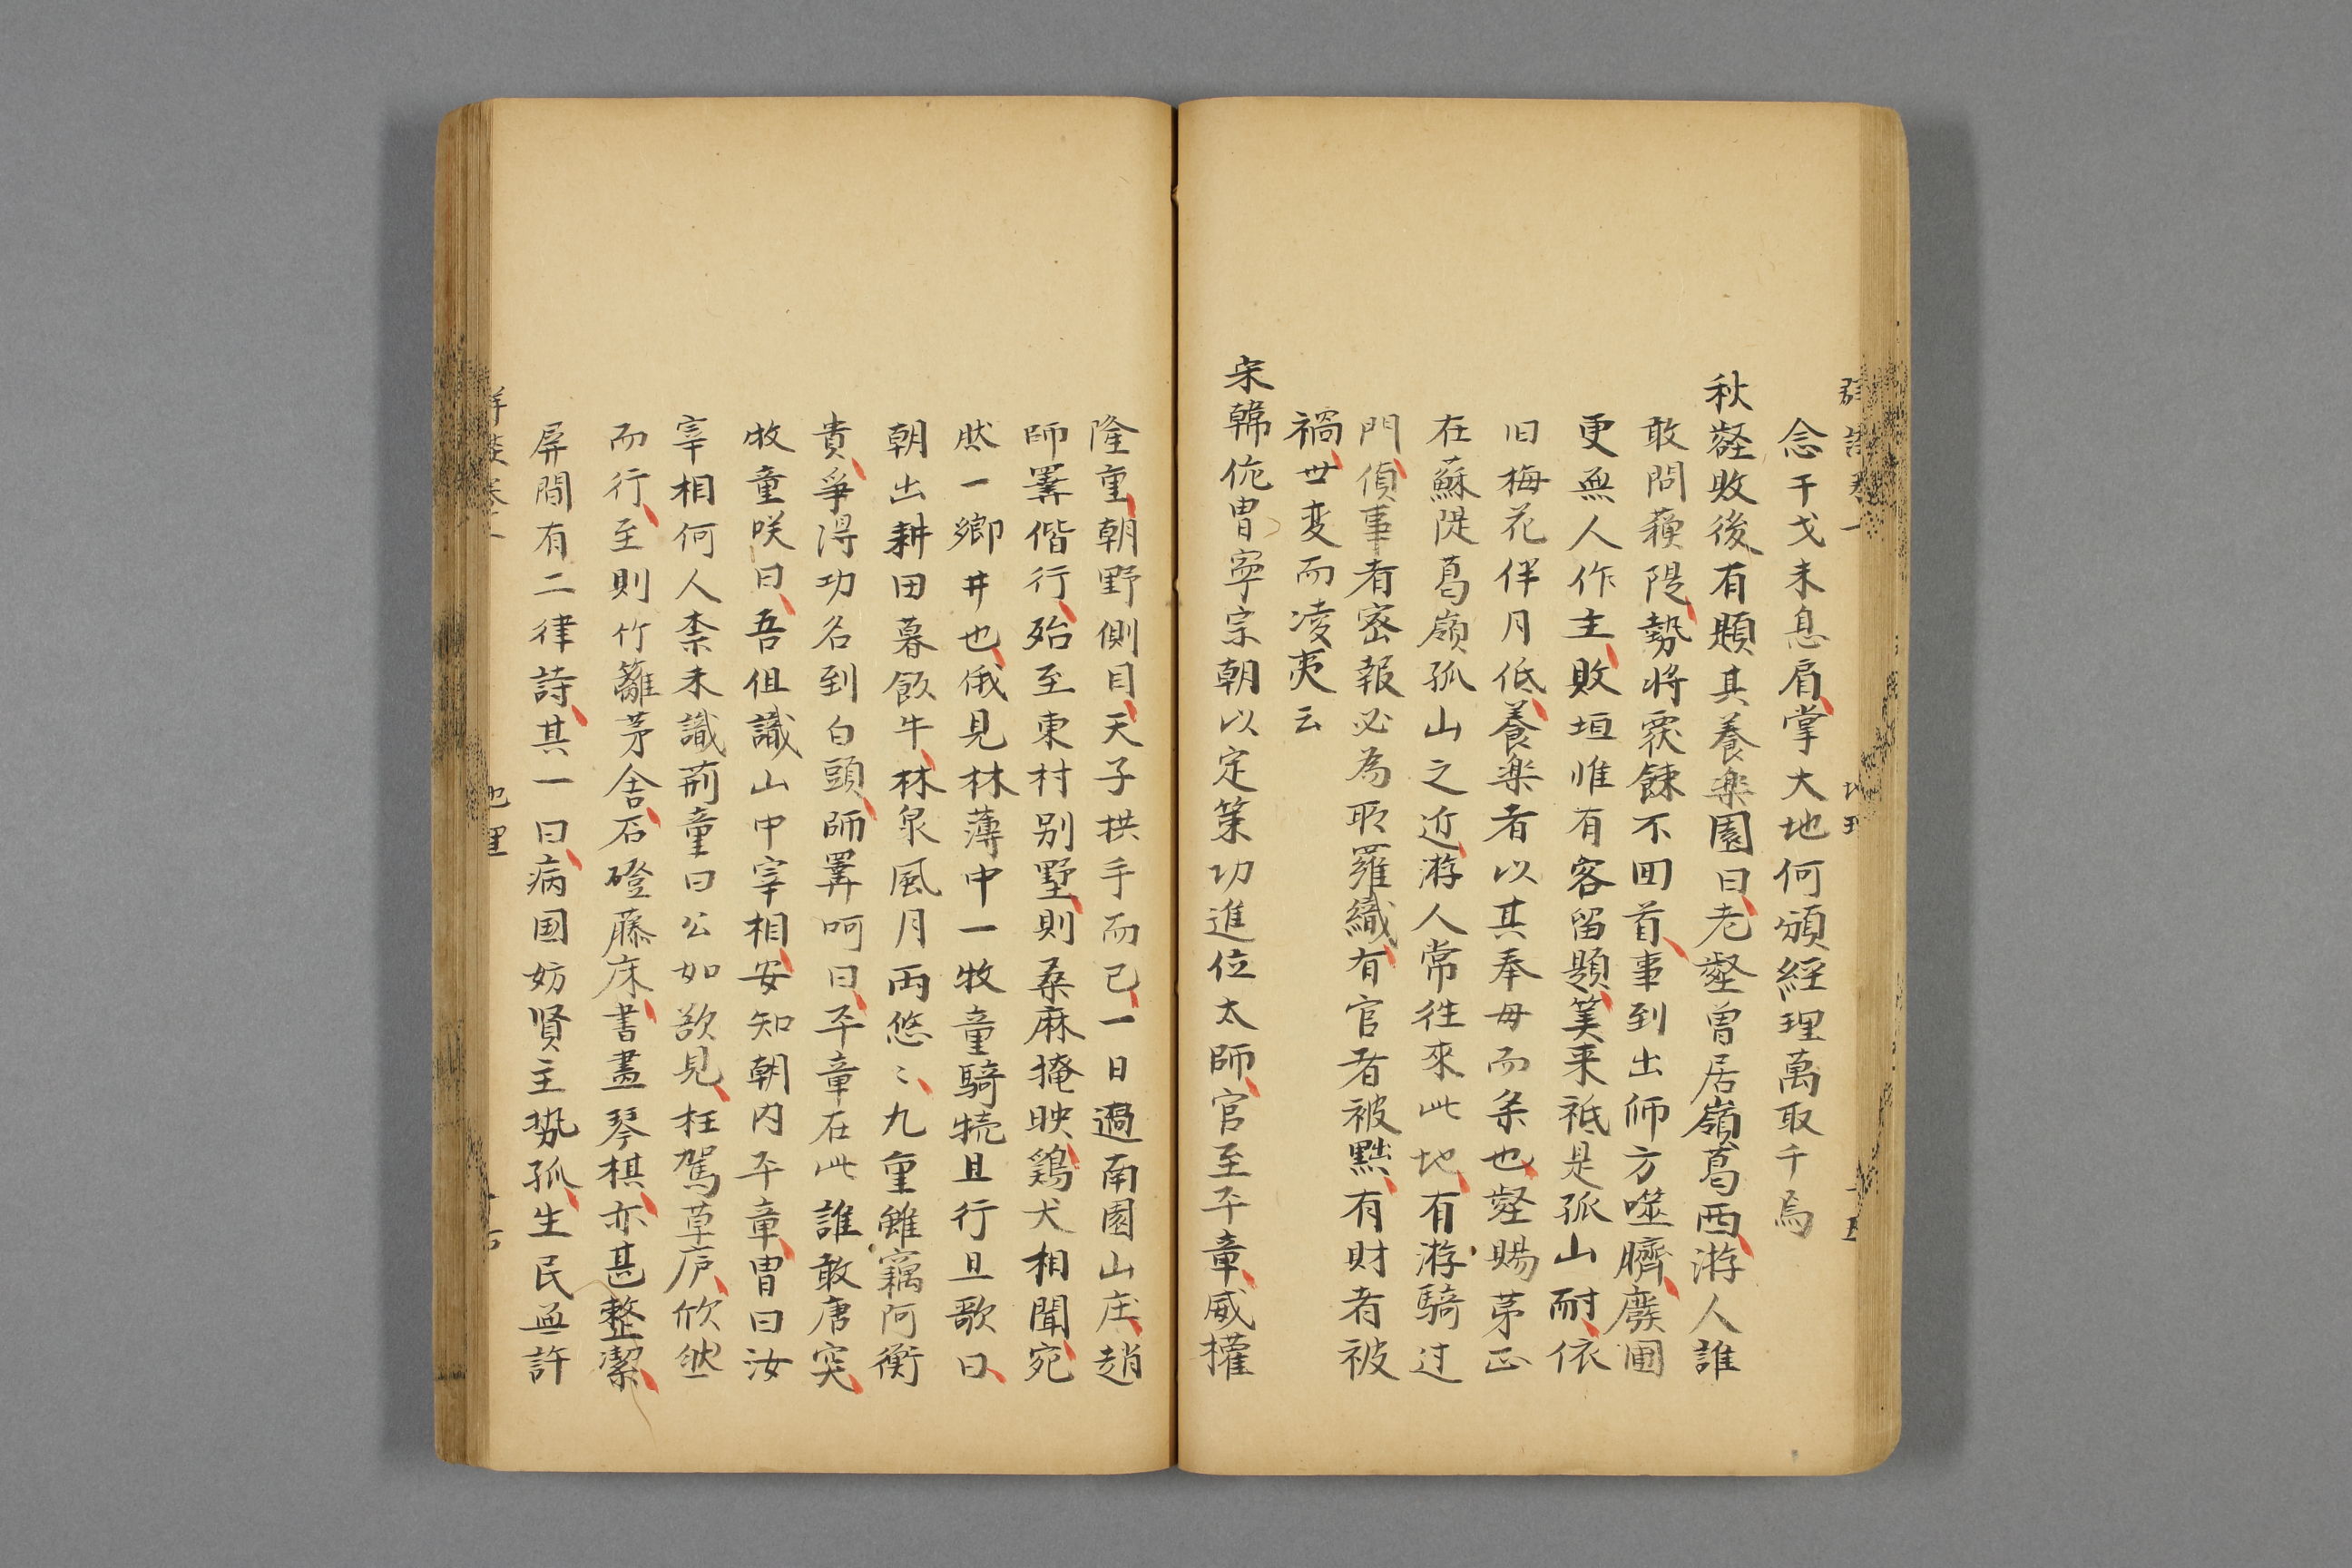 念干戈未息肩掌大地何頒經理萬取千焉
秋壑敗後有題其養楽園曰老壑曽居嶺葛西游人誰
敢問蘓隄勢将覆餗不囬首事到出师方噬臍廢圃
更無人作主敗垣惟有客留題筭来祗是孤山耐依
旧梅花伴月低養楽者以其奉母而条也壑賜苐正
在蘇隄葛嶺孤山之近游人常徃來此地有游騎过
門偵事者密報必為取羅織有官者被黜有財者被
禍世変而凌夷云
宋韓侂冑寧宗朝以定策功進位太師官至平章威權
隆重朝野側目天子拱手而已一日過南園山庄趙
師睪偕行殆至東村别墅則桑麻掩映鷄犬相聞宛
肰一鄉井也俄見林薄中一牧童騎犢且行且歌曰
朝出耕田暮飲牛林泉風月两悠〻九重雖竊阿衡
貴爭得功名到白頭師睪呵曰平章在此誰敢唐突
牧童咲曰吾但識山中宰相安知朝内平章冑曰汝
宰相何人柰未識荊童曰公如欲見枉駕草庐欣然
而行至則竹籬茅舍石磴藤床書畫琴棋亦甚整潔
屏間有二律詩其一曰病国妨賢主势孤生民無許